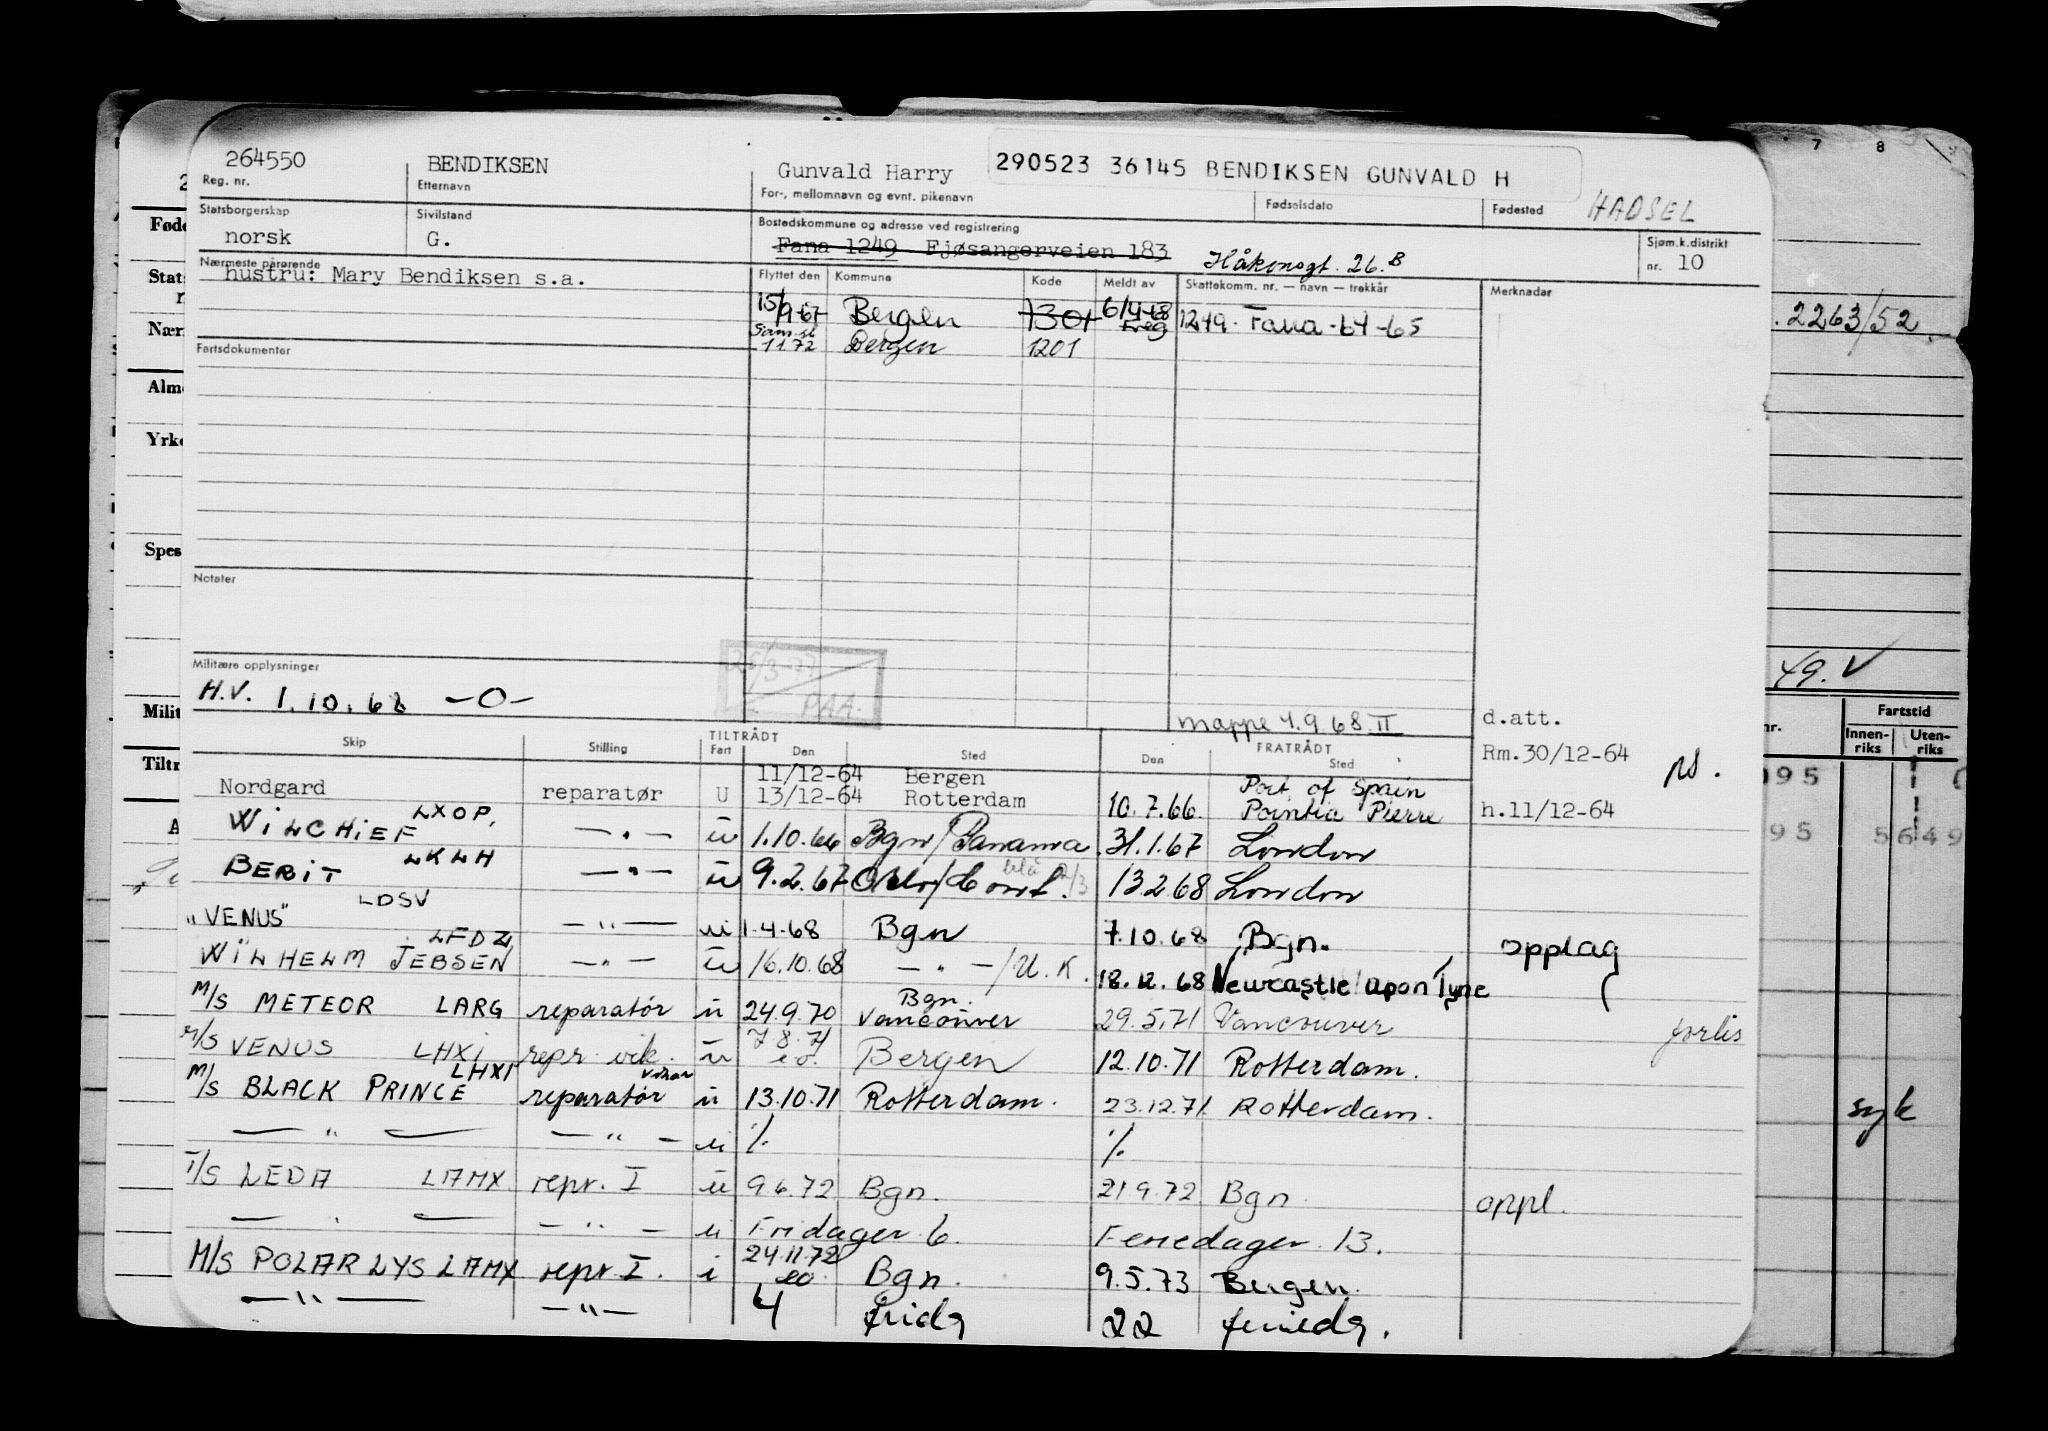 264550 BENDIKSEN Gunvald Harry 290523 36145 BENDIKSEN GUNVALD H
Reg. nr. Etternavn For-, mellomnavn og evnt. pikenavn Fødselsdato Fødested HADSEL
Statsborgerskap Sivilstand Bostedskommune og adresse ved registrering Sjøm.k.distrikt
norsk G. Fana 1249 Fjøsangerveien 183 Håkonsgt. 26.B nr. 10
Nærmeste pårørende Flyttet den Kommune Kode Meldt av Skattekomm. nr. — navn — trekkår Merknader
hustru: Mary Bendiksen s.a.
15/9-67 Bergen 1301 6/4-68 1249. Fana -64-65
1172 Bergen 1201
Fartsdokumenter
Notater
Militære opplysninger
H.V. 1.10.68 -O-
PAA.
mappe 4.9.68 II
d.att.
Skip Stilling TILTRÅDT Fart Den Sted FRATRÅDT Den Sted
Rm.30/12-64
11/12-64 Bergen Port of Spain
Nordgard reparatør U 13/12-64 Rotterdam 10.7.66. Pointia Pierre h.11/12-64
WILCHIEF LXOP, — " — u 1.10.66 Bgn/Panama 31.1.67 London
BERIT LKLH — " — u 9.2.67 Oslo/Cont. 13268 London
"VENUS" LDSV — " — u 1-4-68 Bgn 7.10.68 Bgn. opplag
WILHELM JEBSEN LFDZ — " — u 16.10.68 — " —/U.K. 18.12.68 Newcastle upon Tyne
M/S METEOR LARG reparatør u 24.9.70 Bgn. Vancouver 29.5.71 Vancouver forlis
M/S VENUS LHXI repr. vik. u 7.8.71 Bergen 12.10.71 Rotterdam.
M/S BLACK PRINCE LHXI reparatør u 13.10.71 Rotterdam. 23.12.71. Rotterdam.
— " — — " — u ./. ./.
T/S LEDA LAMX repr. I u 9.6.72 Bgn. 21.9.72 Bgn. oppl.
— " — — " — u Fridager 6. Feriedager 13.
M/S POLARLYS LAMX repr. I. i 24.11.72 Bgn. 9.5.73 Bergen.
— " — — " — 4 fridg 22 feriedg.
7 8
Føde
Stats
Nærm
Alme
Yrke
Spes
Milit
Tiltr
2263/52
49. V
nr. Fartstid
Innen-riks Uten-riks
95
95 5649
syk